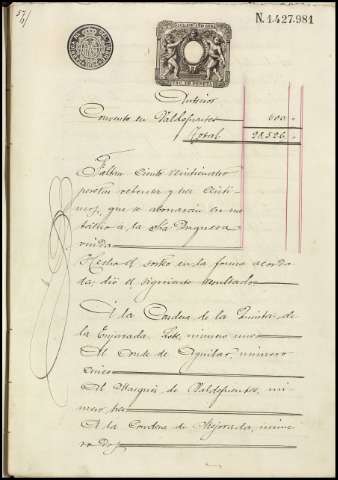 N. 1.427.981
Anterior
Convento en Valdefuentes 600
Total 28.526
Faltan ciento veinticuatro
pesetas ochenta y tres cénti-
mos, que se abonarán en me-
tálico a la Sra Duquesa
viuda
Hecho el sorteo en la forma acorda-
da, dio el siguiente resultado
A la Condesa de la Quinta de
la Enjarada, lote, número uno
Al Conde de Aguilar, número
cinco
Al Marqués de Valdefuentes, nú-
mero tres
A la Condesa de Mejorada, núme-
ro dos